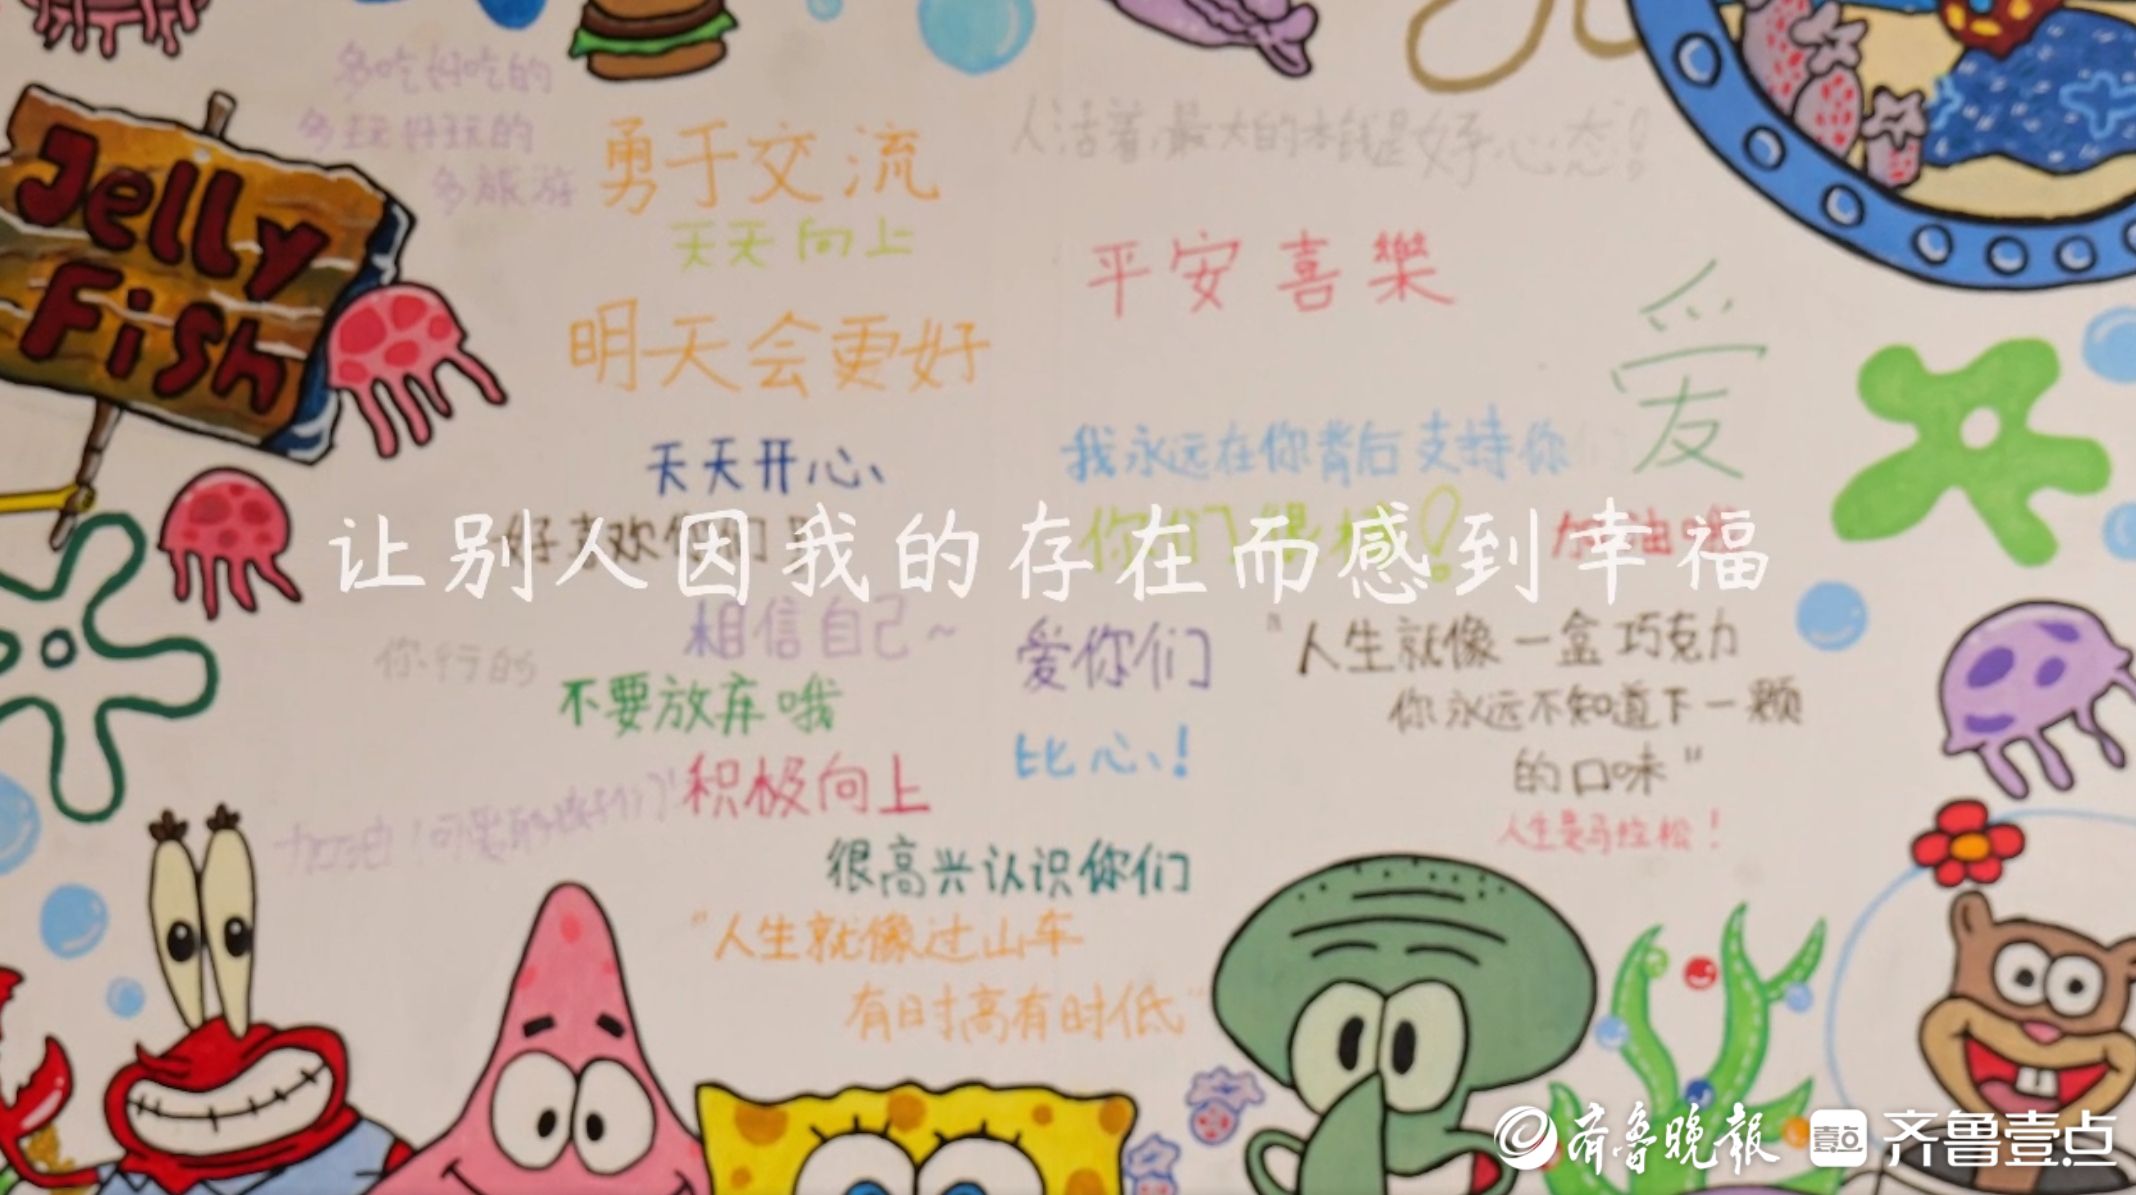 多吃好吃的
多玩好玩的
多旅游
勇于交流
天天向上
人活着,最大的本钱是好心态!
Jelly
Fish
平安喜樂
明天会更好
爱
天天开心、
我永远在你背后支持你
好喜欢你们
你们很棒!
加油哦
让别人因我的存在而感到幸福
相信自己~
你行的
爱你们
不要放弃哦
"人生就像一盒巧克力
你永远不知道下一颗
的口味"
比心、!
积极向上
人生是马拉松!
很高兴认识你们
"人生就像过山车
有时高有时低"
齐鲁晚报 壹点 齐鲁壹点